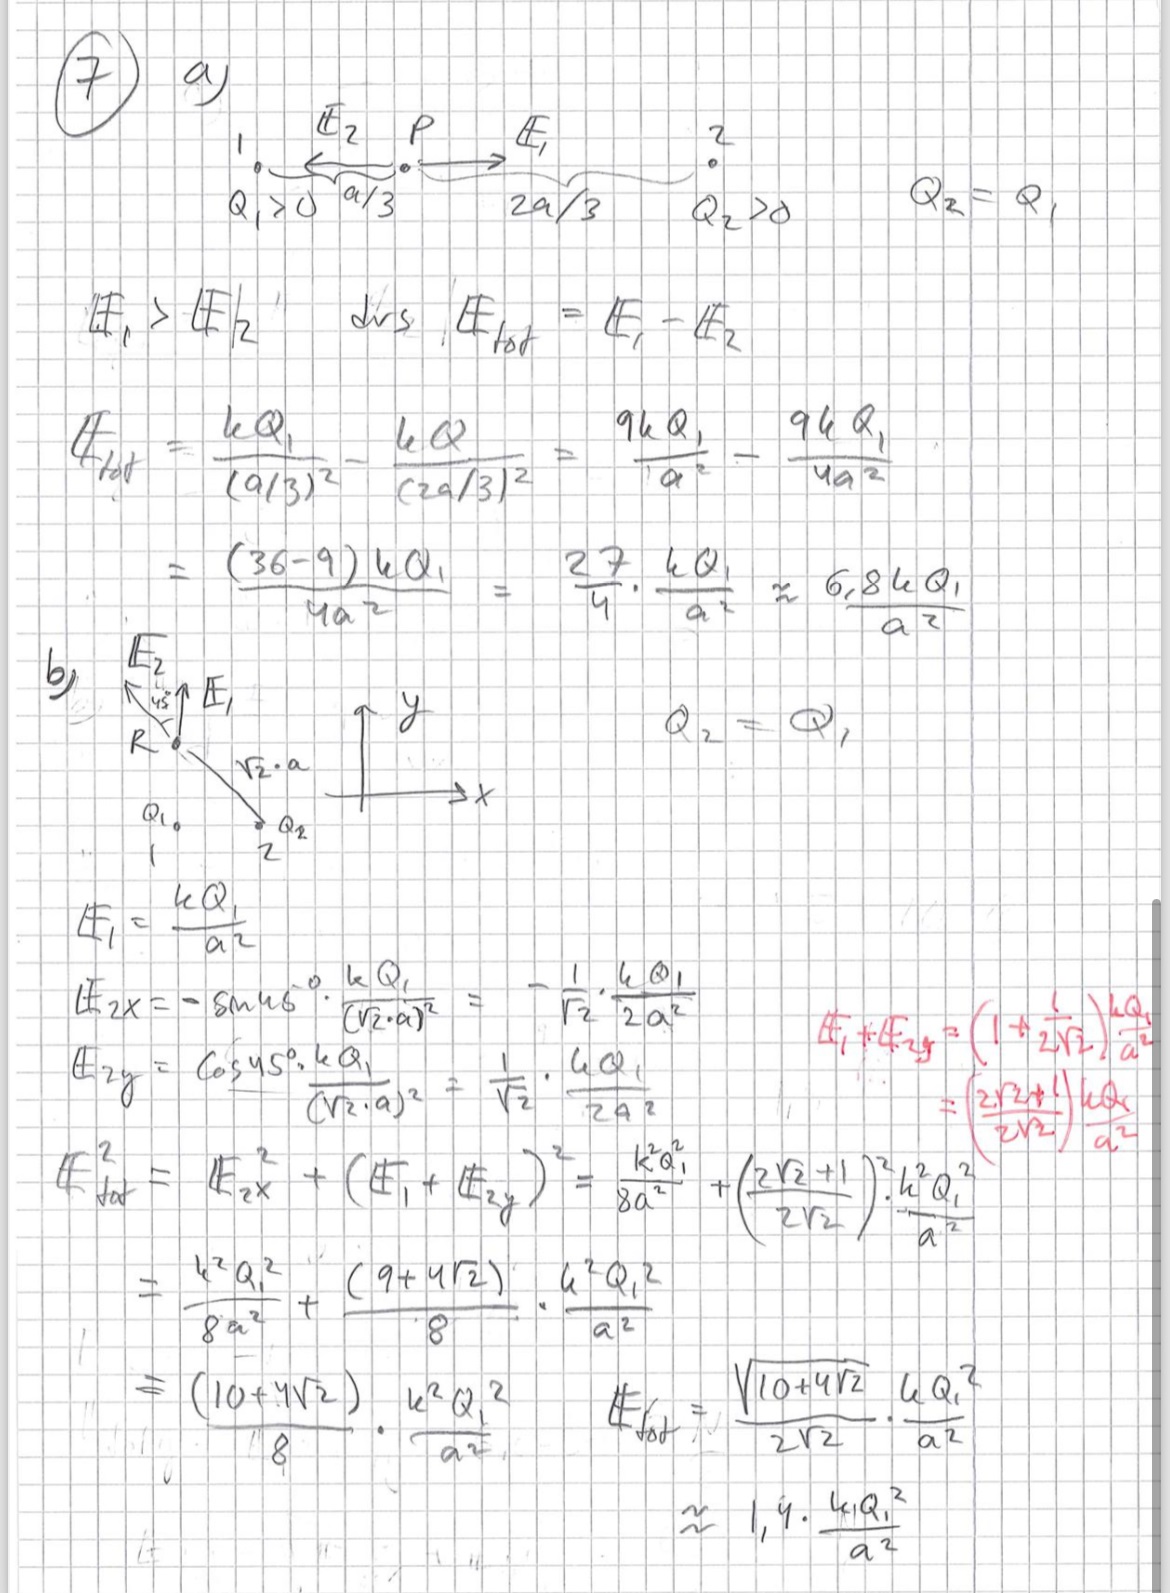 7 a)
E₂ P E₁
1 2
Q₁>0 a/3 2a/3 Q₂>0 Q₂ = Q₁
E₁ > E₂ dvs E_tot = E₁ − E₂
E_tot = kQ₁/(a/3)² − kQ/(2a/3)² = 9kQ₁/a² − 9kQ₁/4a²
= (36−9)kQ₁/4a² = 27/4 · kQ₁/a² ≈ 6,8kQ₁/a²
b) E₂
45° E₁ y Q₂ = Q₁
R √2·a
x
Q₁ Q₂
1 2
E₁ = kQ₁/a²
E₂x = − sin45° · kQ₁/(√2·a)² = − 1/√2 · kQ₁/2a²
E₁ + E₂y = (1 + 1/2√2) kQ₁/a²
E₂y = Cos45° · kQ₁/(√2·a)² = 1/√2 · kQ₁/2a²
= (2√2+1/2√2) kQ₁/a²
E²_tot = E²₂x + (E₁ + E₂y)² = k²Q₁²/8a² + (2√2+1/2√2)² · k²Q₁²/a²
= k²Q₁²/8a² + (9+4√2)/8 · k²Q₁²/a²
= (10+4√2)/8 · k²Q₁²/a² E_tot = √10+4√2/2√2 · kQ₁²/a²
≈ 1,4 · kQ₁²/a²